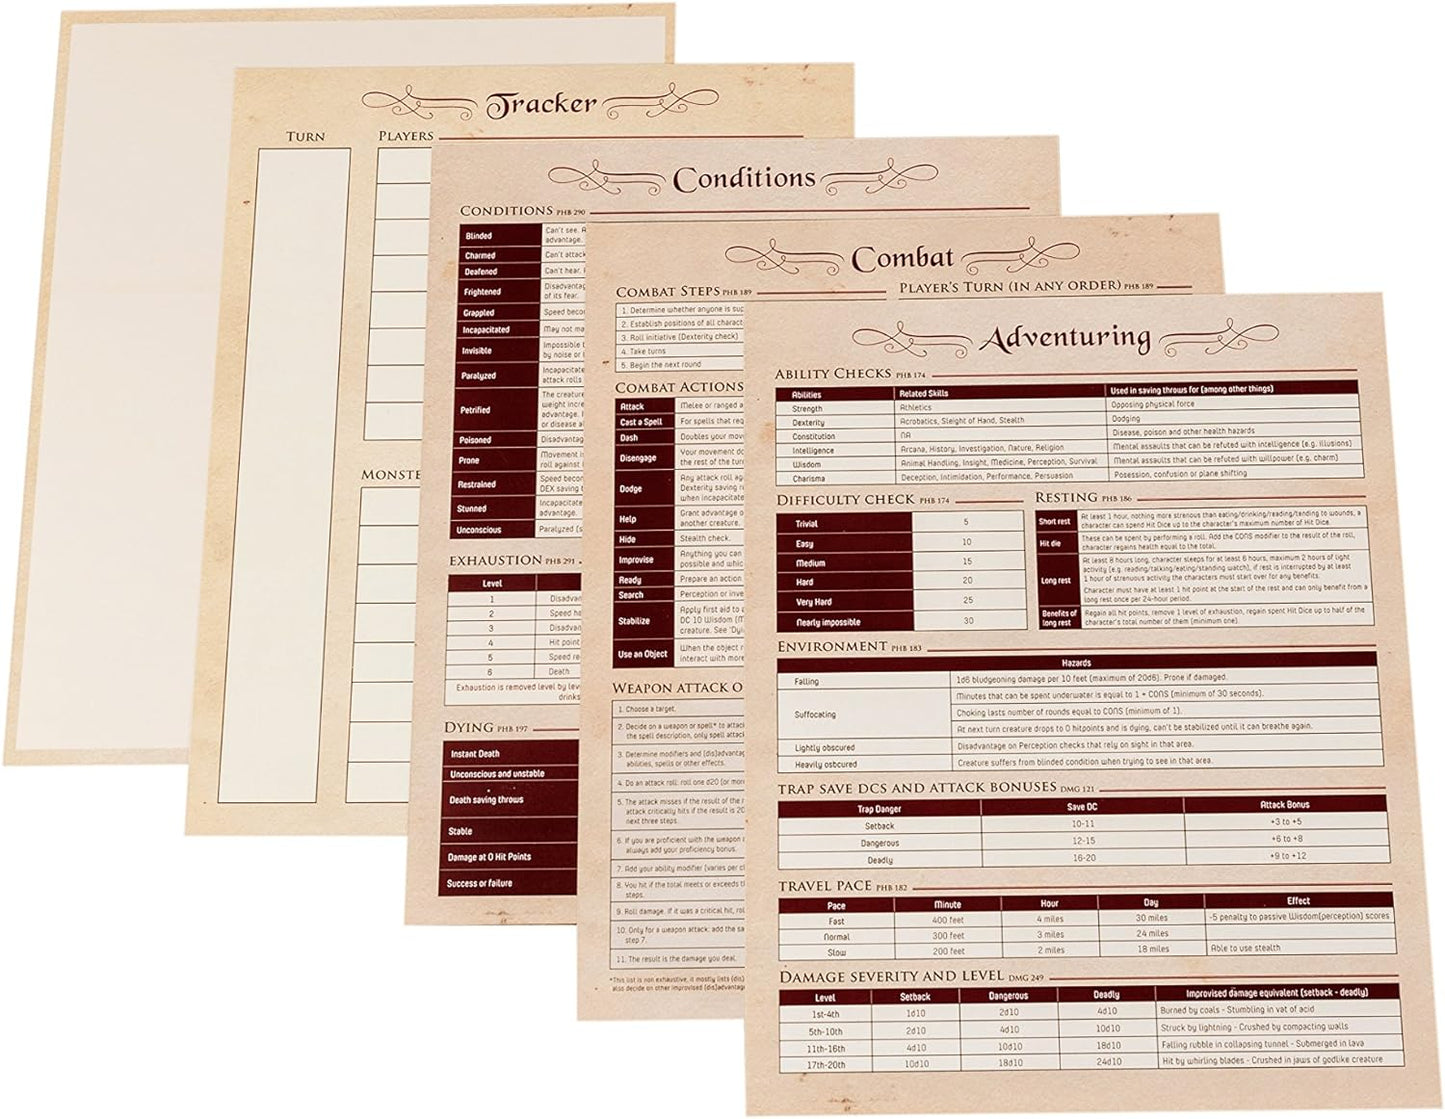 Tracker
TURN PLAYERS
MONSTE
Conditions
CONDITIONS PHB 290
Blinded Can't see. A
advantage.
Charmed Can't attack
Deafened Can't hear.
Frightened Disadvantag
of its fear.
Grappled Speed becom
Incapacitated May not ma
Invisible Impossible t
by noise or
Paralyzed Incapacitate
attack rolls
Petrified The creature
weight incre
advantage.
or disease a
Poisoned Disadvantag
Prone Movement i
roll against
Restrained Speed becom
DEX saving t
Stunned Incapacitate
advantage.
Unconscious Paralyzed (s
EXHAUSTION PHB 291
Level
1 Disadvan
2 Speed ha
3 Disadvan
4 Hit point
5 Speed re
6 Death
Exhaustion is removed level by leve
drinks
DYING PHB 197
Instant Death
Unconscious and unstable
Death saving throws
Stable
Damage at 0 Hit Points
Success or failure
Combat
COMBAT STEPS PHB 189
1. Determine whether anyone is sur
2. Establish positions of all charact
3. Roll initiative (Dexterity check)
4. Take turns
5. Begin the next round
PLAYER'S TURN (IN ANY ORDER) PHB 189
COMBAT ACTIONS
Attack Melee or ranged a
Cast a Spell For spells that req
Dash Doubles your mov
Disengage Your movement do
the rest of the turn
Dodge Any attack roll ag
Dexterity saving r
when incapacitate
Help Grant advantage o
another creature.
Hide Stealth check.
Improvise Anything you can
possible and whic
Ready Prepare an action
Search Perception or inve
Stabilize Apply first aid to a
DC 10 Wisdom (M
creature. See 'Dyi
Use an Object When the object r
interact with more
WEAPON ATTACK O
1. Choose a target.
2. Decide on a weapon or spell* to attac
the spell description, only spell attack
3. Determine modifiers and (dis)advantag
abilities, spells or other effects.
4. Do an attack roll: roll one d20 (or mor
5. The attack misses if the result of the r
attack critically hits if the result is 20
next three steps.
6. If you are proficient with the weapon o
always add your proficiency bonus.
7. Add your ability modifier (varies per cl
8. You hit if the total meets or exceeds th
steps.
9. Roll damage. If it was a critical hit, rol
10. Only for a weapon attack: add the sa
step 7.
11. The result is the damage you deal.
*This list is not exhaustive, it mostly lists (dis)
also decide on other improvised (dis)advantag
Adventuring
ABILITY CHECKS PHB 174
Abilities Related Skills Used in saving throws for (among other things)
Strength Athletics Opposing physical force
Dexterity Acrobatics, Sleight of Hand, Stealth Dodging
Constitution NA Disease, poison and other health hazards
Intelligence Arcana, History, Investigation, Nature, Religion Mental assaults that can be refuted with intelligence (e.g. illusions)
Wisdom Animal Handling, Insight, Medicine, Perception, Survival Mental assaults that can be refuted with willpower (e.g. charm)
Charisma Deception, Intimidation, Performance, Persuasion Posession, confusion or plane shifting
DIFFICULTY CHECK PHB 174
Trivial 5
Easy 10
Medium 15
Hard 20
Very Hard 25
Nearly impossible 30
RESTING PHB 186
Short rest At least 1 hour, nothing more strenous than eating/drinking/reading/tending to wounds, a
character can spend Hit Dice up to the character's maximum number of Hit Dice.
Hit die These can be spent by performing a roll. Add the CONS modifier to the result of the roll,
character regains health equal to the total.
Long rest At least 8 hours long, character sleeps for at least 6 hours, maximum 2 hours of light
activity (e.g. reading/talking/eating/standing watch), if rest is interrupted by at least
1 hour of strenuous activity the characters must start over for any benefits.
Character must have at least 1 hit point at the start of the rest and can only benefit from a
long rest once per 24-hour period.
Benefits of long rest Regain all hit points, remove 1 level of exhaustion, regain spent Hit Dice up to half of the
character's total number of them (minimum one).
ENVIRONMENT PHB 183
Hazards
Falling 1d6 bludgeoning damage per 10 feet (maximum of 20d6). Prone if damaged.
Suffocating Minutes that can be spent underwater is equal to 1 + CONS (minimum of 30 seconds).
Choking lasts number of rounds equal to CONS (minimum of 1).
At next turn creature drops to 0 hitpoints and is dying, can't be stabilized until it can breathe again.
Lightly obscured Disadvantage on Perception checks that rely on sight in that area.
Heavily osbcured Creature suffers from blinded condition when trying to see in that area.
TRAP SAVE DCS AND ATTACK BONUSES DMG 121
Trap Danger Save DC Attack Bonus
Setback 10-11 +3 to +5
Dangerous 12-15 +6 to +8
Deadly 16-20 +9 to +12
TRAVEL PACE PHB 182
Pace Minute Hour Day Effect
Fast 400 feet 4 miles 30 miles -5 penalty to passive Wisdom(perception) scores
Normal 300 feet 3 miles 24 miles
Slow 200 feet 2 miles 18 miles Able to use stealth
DAMAGE SEVERITY AND LEVEL DMG 249
Level Setback Dangerous Deadly Improvised damage equivalent (setback - deadly)
1st-4th 1d10 2d10 4d10 Burned by coals - Stumbling in vat of acid
5th-10th 2d10 4d10 10d10 Struck by lightning - Crushed by compacting walls
11th-16th 4d10 10d10 18d10 Falling rubble in collapsing tunnel - Submerged in lava
17th-20th 10d10 18d10 24d10 Hit by whirling blades - Crushed in jaws of godlike creature